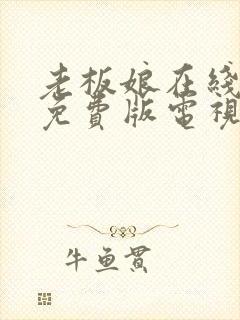 老板娘在綫
免費版電視
牛鱼貫